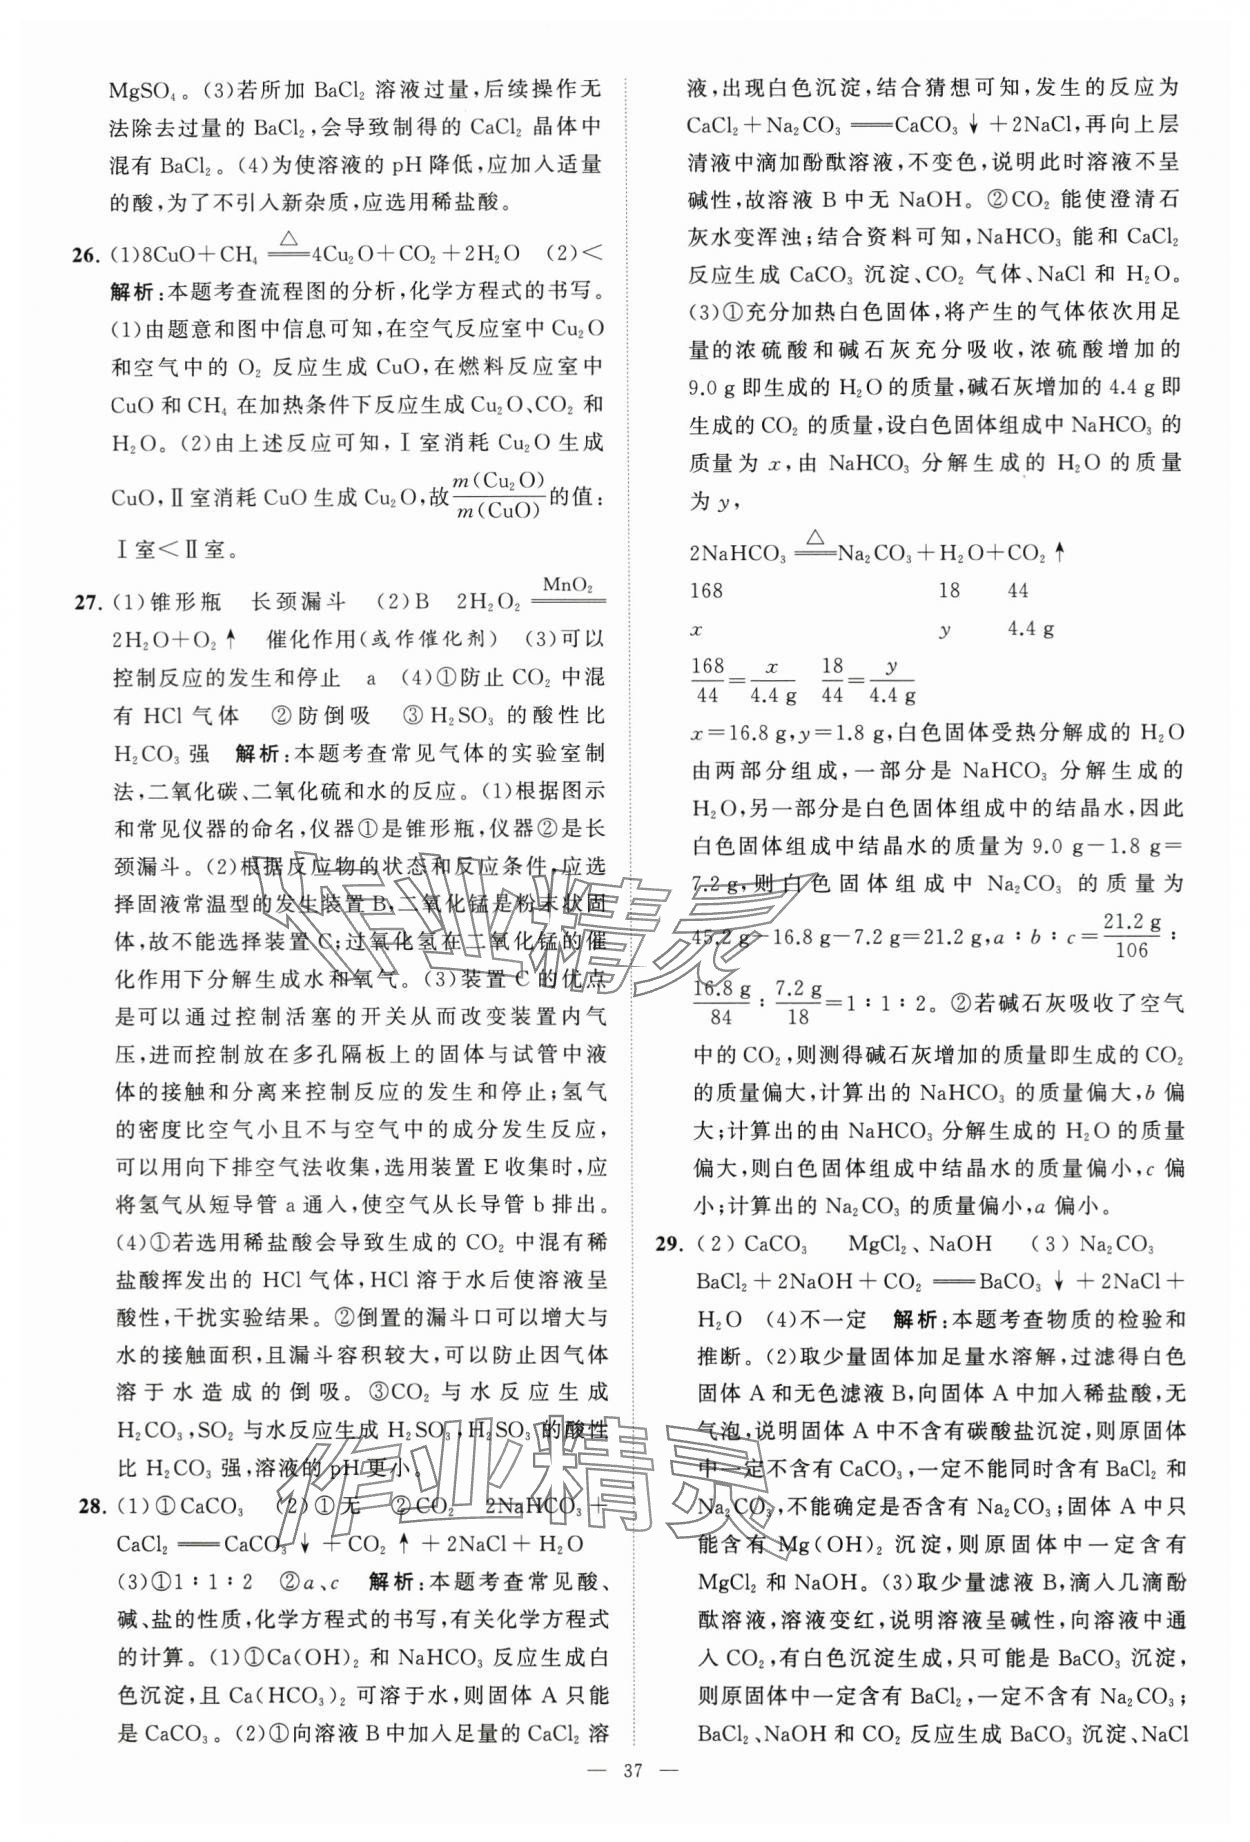 MgSO₄。(3)若所加 BaCl₂ 溶液过量,后续操作无
法除去过量的 BaCl₂,会导致制得的 CaCl₂ 晶体中
混有 BaCl₂。(4)为使溶液的 pH 降低,应加入适量
的酸,为了不引入新杂质,应选用稀盐酸。
26. (1)8CuO+CH₄ ══△══ 4Cu₂O+CO₂+2H₂O (2)<
解析:本题考查流程图的分析,化学方程式的书写。
(1)由题意和图中信息可知,在空气反应室中 Cu₂O
和空气中的 O₂ 反应生成 CuO,在燃料反应室中
CuO 和 CH₄ 在加热条件下反应生成 Cu₂O、CO₂ 和
H₂O。(2)由上述反应可知,Ⅰ室消耗 Cu₂O 生成
CuO,Ⅱ室消耗 CuO 生成 Cu₂O,故 m(Cu₂O)/m(CuO) 的值:
Ⅰ室<Ⅱ室。
27. (1)锥形瓶 长颈漏斗 (2)B 2H₂O₂ ══MnO₂══
2H₂O+O₂↑ 催化作用(或作催化剂) (3)可以
控制反应的发生和停止 a (4)①防止 CO₂ 中混
有 HCl 气体 ②防倒吸 ③H₂SO₃ 的酸性比
H₂CO₃ 强 解析:本题考查常见气体的实验室制
法,二氧化碳、二氧化硫和水的反应。(1)根据图示
和常见仪器的命名,仪器①是锥形瓶,仪器②是长
颈漏斗。(2)根据反应物的状态和反应条件,应选
择固液常温型的发生装置 B,二氧化锰是粉末状固
体,故不能选择装置 C;过氧化氢在二氧化锰的催
化作用下分解生成水和氧气。(3)装置 C 的优点
是可以通过控制活塞的开关从而改变装置内气
压,进而控制放在多孔隔板上的固体与试管中液
体的接触和分离来控制反应的发生和停止;氢气
的密度比空气小且不与空气中的成分发生反应,
可以用向下排空气法收集,选用装置 E 收集时,应
将氢气从短导管 a 通入,使空气从长导管 b 排出。
(4)①若选用稀盐酸会导致生成的 CO₂ 中混有稀
盐酸挥发出的 HCl 气体,HCl 溶于水后使溶液呈
酸性,干扰实验结果。②倒置的漏斗口可以增大与
水的接触面积,且漏斗容积较大,可以防止因气体
溶于水造成的倒吸。③CO₂ 与水反应生成
H₂CO₃,SO₂ 与水反应生成 H₂SO₃,H₂SO₃ 的酸性
比 H₂CO₃ 强,溶液的 pH 更小。
28. (1)①CaCO₃ (2)①无 ②CO₂ 2NaHCO₃+
CaCl₂ ══ CaCO₃↓+CO₂↑+2NaCl+H₂O
(3)①1∶1∶2 ②a、c 解析:本题考查常见酸、
碱、盐的性质,化学方程式的书写,有关化学方程式
的计算。(1)①Ca(OH)₂ 和 NaHCO₃ 反应生成白
色沉淀,且 Ca(HCO₃)₂ 可溶于水,则固体 A 只能
是 CaCO₃。(2)①向溶液 B 中加入足量的 CaCl₂ 溶
液,出现白色沉淀,结合猜想可知,发生的反应为
CaCl₂+Na₂CO₃ ══ CaCO₃↓+2NaCl,再向上层
清液中滴加酚酞溶液,不变色,说明此时溶液不呈
碱性,故溶液 B 中无 NaOH。②CO₂ 能使澄清石
灰水变浑浊;结合资料可知,NaHCO₃ 能和 CaCl₂
反应生成 CaCO₃ 沉淀、CO₂ 气体、NaCl 和 H₂O。
(3)①充分加热白色固体,将产生的气体依次用足
量的浓硫酸和碱石灰充分吸收,浓硫酸增加的
9.0 g 即生成的 H₂O 的质量,碱石灰增加的 4.4 g 即
生成的 CO₂ 的质量,设白色固体组成中 NaHCO₃ 的
质量为 x,由 NaHCO₃ 分解生成的 H₂O 的质量
为 y,
2NaHCO₃ ══△══ Na₂CO₃+H₂O+CO₂↑
168 18 44
x y 4.4 g
168/44=x/4.4 g 18/44=y/4.4 g
x=16.8 g,y=1.8 g,白色固体受热分解成的 H₂O
由两部分组成,一部分是 NaHCO₃ 分解生成的
H₂O,另一部分是白色固体组成中的结晶水,因此
白色固体组成中结晶水的质量为 9.0 g−1.8 g=
7.2 g,则白色固体组成中 Na₂CO₃ 的质量为
45.2 g−16.8 g−7.2 g=21.2 g,a∶b∶c=21.2 g/106∶
16.8 g/84∶7.2 g/18=1∶1∶2。②若碱石灰吸收了空气
中的 CO₂,则测得碱石灰增加的质量即生成的 CO₂
的质量偏大,计算出的 NaHCO₃ 的质量偏大,b 偏
大;计算出的由 NaHCO₃ 分解生成的 H₂O 的质量
偏大,则白色固体组成中结晶水的质量偏小,c 偏
小;计算出的 Na₂CO₃ 的质量偏小,a 偏小。
29. (2)CaCO₃ MgCl₂、NaOH (3)Na₂CO₃
BaCl₂+2NaOH+CO₂ ══ BaCO₃↓+2NaCl+
H₂O (4)不一定 解析:本题考查物质的检验和
推断。(2)取少量固体加足量水溶解,过滤得白色
固体 A 和无色滤液 B,向固体 A 中加入稀盐酸,无
气泡,说明固体 A 中不含有碳酸盐沉淀,则原固体
中一定不含有 CaCO₃,一定不能同时含有 BaCl₂ 和
Na₂CO₃,不能确定是否含有 Na₂CO₃;固体 A 中只
能含有 Mg(OH)₂ 沉淀,则原固体中一定含有
MgCl₂ 和 NaOH。(3)取少量滤液 B,滴入几滴酚
酞溶液,溶液变红,说明溶液呈碱性,向溶液中通
入 CO₂,有白色沉淀生成,只可能是 BaCO₃ 沉淀,
则原固体中一定含有 BaCl₂,一定不含有 Na₂CO₃;
BaCl₂、NaOH 和 CO₂ 反应生成 BaCO₃ 沉淀、NaCl
— 37 —
作业精灵
作业精灵